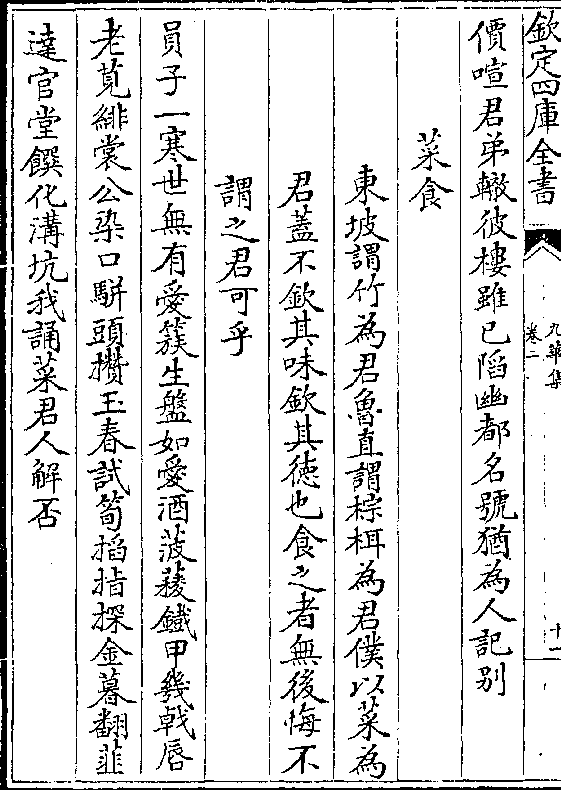 欽定四庫全書
九華集
卷二
十一
價喧君弟轍彼樓雖已陷幽都名號猶為人記别
菜食
東坡謂竹為君魯直謂椶栮為君僕以菜為
君蓋不欽其味欽其徳也食之者無後悔不
謂之君可乎
員子一寒世無有愛簇生盤如愛酒菠薐鐡甲幾戟唇
老莧緋裳公染口駢頭攢玉春試筍搯指探金暮翻韮
達官堂饌化溝坑我誦菜君人解否